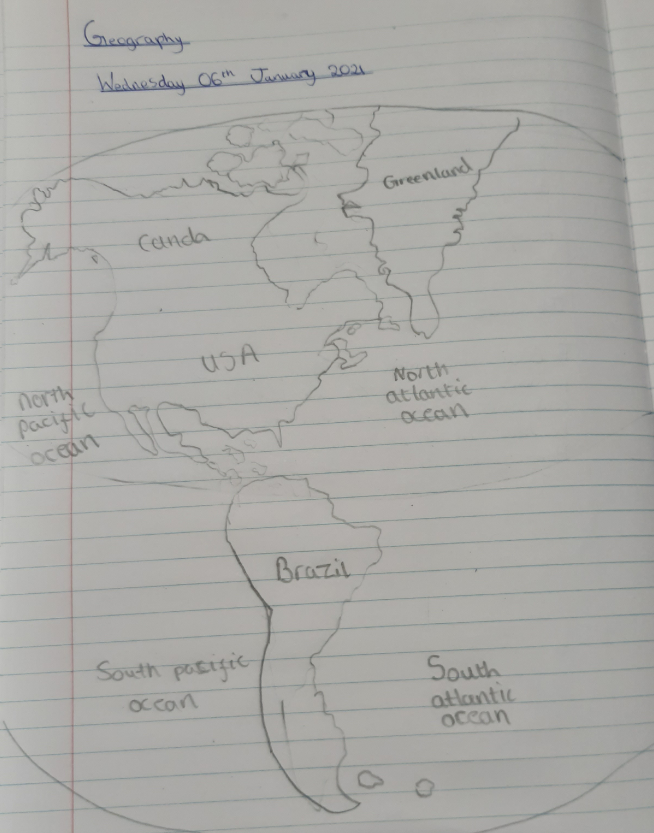 Geography
Wednesday 06th January 2021
Greenland
Canda
USA
North
atlantic
ocean
north
pacific
ocean
Brazil
South pacific
ocean
South
atlantic
ocean